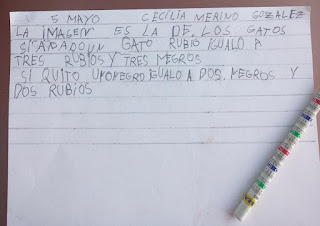 5 MAYO CECILIA MERINO GOZALEZ
LA IMAGEN ES LA DE LOS GATOS
SI AÑADO UN GATO RUBIO IGUALO A
TRES RUBIOS Y TRES NEGROS
SI QUITO UNO NEGRO IGUALO A DOS NEGROS Y
DOS RUBIOS